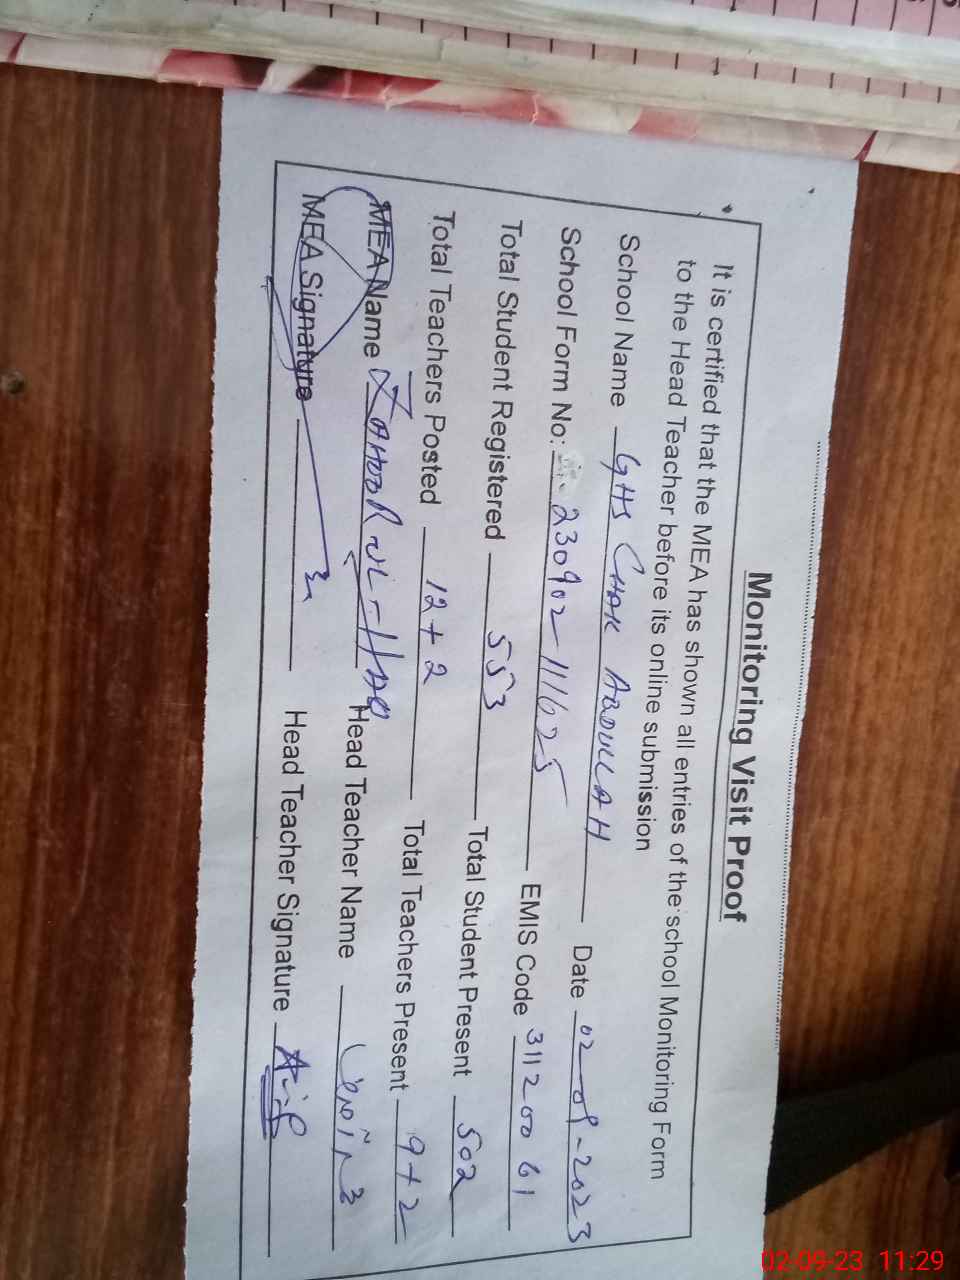 Monitoring Visit Proof
It is certified that the MEA has shown all entries of the school Monitoring Form
to the Head Teacher before its online submission
School Name GHS CHAK ABDULLAH Date 02-09-2023
School Form No: 230902-111625 EMIS Code 31120061
Total Student Registered 553 Total Student Present 502
Total Teachers Posted 12+2 Total Teachers Present 9+2
MEA Name ZAHOOR UL-HAQ Head Teacher Name
MEA Signature Head Teacher Signature
02-09-23 11:29